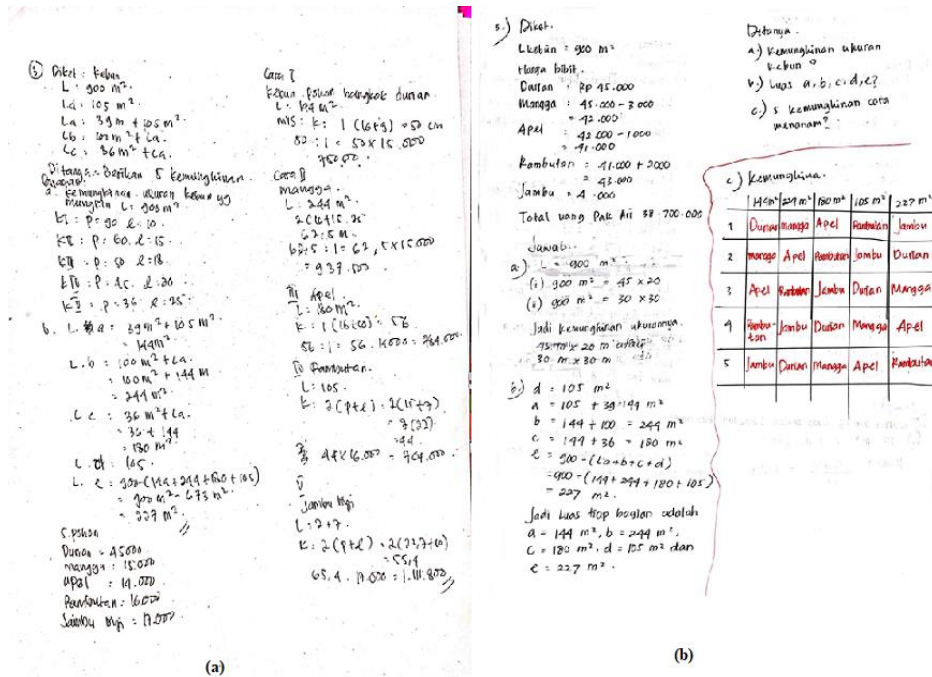 ③ Diket : Kebun
L : 900 m².
Ld : 105 m².
La : 39 m + 105 m².
Lb : 100 m² + La.
Lc : 36 m² + La.
Ditanya : Berikan 5 kemungkinan.
a. kemungkinan ukuran kebun yg
mungkin L = 900 m²
KI : P = 90 l = 10.
KII : P = 60. l = 15.
KIII : P = 50 l = 18.
KIV : P = 45. l = 20
KV : P = 36. l = 25
b. L. a = 39 m² + 105 m².
= 144 m².
L. b = 100 m² + La.
= 100 m² + 144 m
= 244 m².
L c = 36 m² + La.
= 36 + 144
= 180 m².
L. d : 105.
L. e = 900 - (144 + 244 + 180 + 105)
= 900 m² - 673 m².
= 227 m².
C. pohon
Durian = 45000
mangga : 15.000
apel : 14.000
Rambutan : 16.000
Jambu biji = 17.000
Cara I
kebun pohon durian
L : 144 m².
mis : K : 1 (16+9) = 50 cm
50 : 1 = 50 x 15.000
750.000.
Cara II
mangga.
L = 244 m².
2 (16 + 15,25
62,5 m.
62,5 : 1 = 62,5 x 15000
= 937.500
III Apel
L = 180 m².
56 : 1 = 56. 14000 = 784.000.
IV Rambutan.
L = 105.
K : 2 (p+l) = 2 (15+7)
= 2 (22)
= 44.
44 x 16.000 = 704.000.
V
Jambu biji
K = 2 (p+l) = 2 (22,7+10)
= 65,4
65,4 . 17.000 = 1.111.800
(a)
5.) Diket.
L kebun = 900 m²
Harga bibit.
Durian : Rp 45.000
Mangga : 45.000 - 3 000
= 42.000
Apel : 42.000 - 1000
= 41.000
Rambutan = 41.000 + 2000
= 43.000
Jambu = 4 .000
Total uang Pak Ali 38.700.000
Jawab.
a.) L = 900 m².
(i) 900 m² = 45 x 20
(ii) 900 m² = 30 x 30
Jadi kemungkinan ukurannya.
45 m x 20 m atau
30 m x 30 m
b.) d = 105 m²
a = 105 + 39 = 144 m²
b = 144 + 100 = 244 m²
c = 144 + 36 = 180 m²
e = 900 - (a+b+c+d)
= 900 - (144 + 244 + 180 + 105)
= 227 m².
Jadi Luas tiap bagian adalah
a = 144 m², b = 244 m²,
c = 180 m², d = 105 m² dan
e = 227 m².
Ditanya.
a.) Kemungkinan ukuran
kebun?
b.) Luas a, b, c, d, e?
c.) 5 kemungkinan cara
menanam?
c) Kemungkina.
144 m² 244 m² 180 m² 105 m² 227 m²
1 Durian mangga Apel Rambutan Jambu
2 mangga Apel Rambutan Jambu Durian
3 Apel Rambutan Jambu Durian Mangga
4 Rambutan Jambu Durian Mangga Apel
5 Jambu Durian Mangga Apel Rambutan
(b)